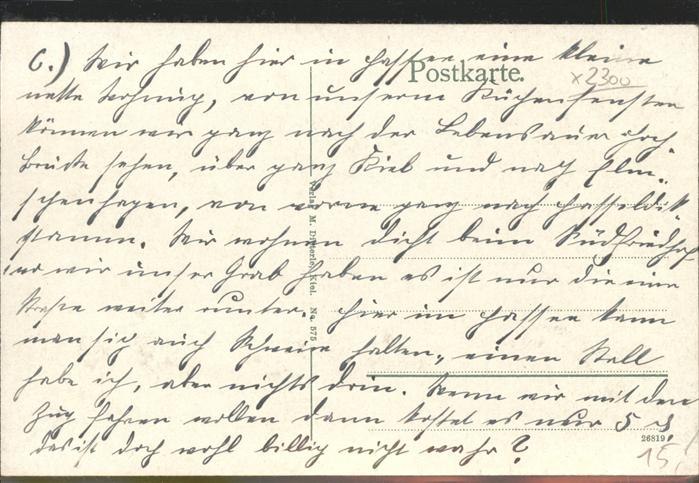 C.) Wir haben hier in Hassee eine kleine
Postkarte.
x2300
nette Wohnung, von unserm Küchenfenster
können wir ganz nach der Lebensauer Hoch-
brücke sehen, über ganz Kiel und nach Elm-
schenhagen, von vorne ganz nach Hasseldiks-
damm. Wir wohnen dicht beim Südfriedhof
wo wir unser Grab haben es ist nur die eine
Straße weiter runter. Hier in Hassee kann
man sich auch Schweine halten, einen Stall
habe ich, aber nichts drin. Wenn wir mit dem
Zug fahren wollen dann kostet es nur 5 ₰
das ist doch wohl billig nicht wahr?
Verlag M. Kiel. No. 575
26819
15,